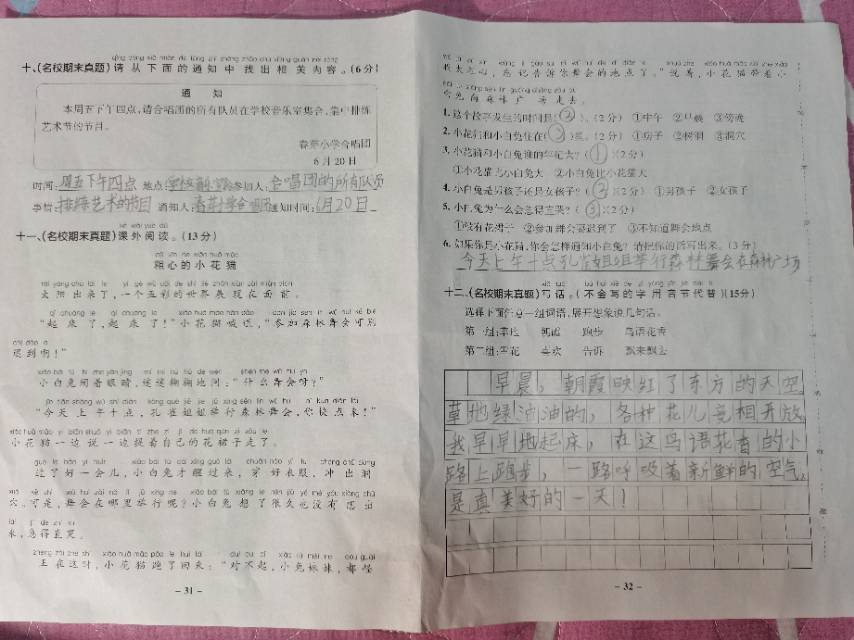 十、(名校期末真题)请从下面的通知中找出相关内容。(6分)
通 知
本周五下午四点,请合唱团的所有队员在学校音乐室集合,集中排练
艺术节的节目。
春芽小学合唱团
6月20日
时间:周五下午四点 地点:学校音乐室 参加人:合唱团的所有队员
事情:排练艺术的节目 通知人:春芽小学合唱团 通知时间:6月20日
十一、(名校期末真题)课外阅读。(13分)
粗心的小花猫
太阳出来了,一个五彩的世界展现在面前。
“起来了,起来了!”小花猫喊道,“参加森林舞会可别
迟到啊!”
小白兔闭着眼睛,迷迷糊糊地问:“什么舞会呀?”
“今天上午十点,孔雀姐姐举行森林舞会,你快点来!”
小花猫一边说一边提着自己的花裙子走了。
过了好一会儿,小白兔才醒过来,穿好衣服,冲出洞
穴。可是,舞会在哪里举行呢?小白兔想了很久也没有想出
来,急得直哭。
正在这时,小花猫跑了回来:“对不起,小兔妹妹,都怪
我太粗心,忘记告诉你舞会的地点了。”说着,小花猫带着小
白兔向森林广场走去。
1.这个故事发生的时间是(②)。(2分) ①中午 ②早晨 ③傍晚
2.小花猫和小白兔住在(③)里。(2分) ①房子 ②树洞 ③洞穴
3.小花猫和小白兔谁的年纪大?(①)(2分)
①小花猫比小白兔大 ②小白兔比小花猫大
4.小白兔是男孩子还是女孩子?(②)(2分) ①男孩子 ②女孩子
5.小白兔为什么会急得直哭?(③)(2分)
①没有花裙子 ②参加舞会要迟到了 ③不知道舞会地点
6.如果你是小花猫,你会怎样通知小白兔?请把你的话写出来。(3分)
今天上午十点孔雀姐姐举行森林舞会在森林广场
十二、(名校期末真题)写话。(不会写的字用音节代替)(15分)
选择下面任意一组词语,展开想象说几句话。
第一组:草地 朝霞 跑步 鸟语花香
第二组:雪花 喜欢 告诉 飘来飘去
早晨,朝霞映红了东方的天空,
草地绿油油的,各种花儿竞相开放,
我早早地起床,在这鸟语花香的小
路上跑步,一路呼吸着新鲜的空气,
是真美好的一天!
-31-
-32-